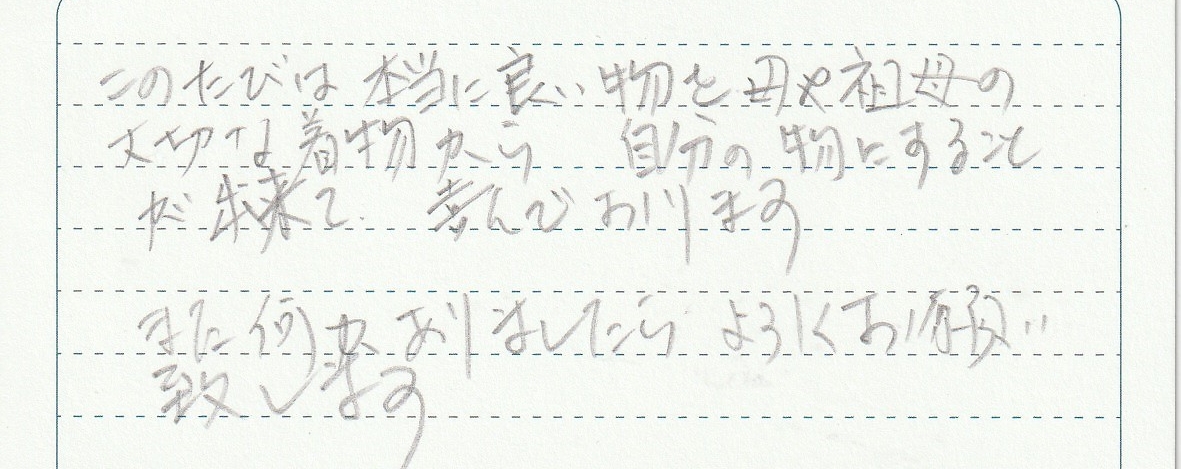 このたびは本当に良い物を母や祖母の
大切な着物から 自分の物にすること
が出来て、喜んでおります
また何かありましたら よろしくお願い
致します